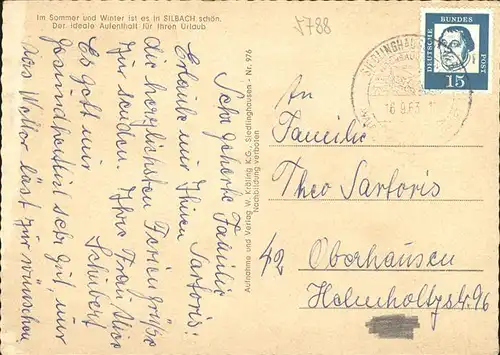 Im Sommer und Winter ist es in SILBACH schön.
Der ideale Aufenthalt für Ihren Urlaub
5788
DEUTSCHE BUNDES POST
15
SIEDLINGHAUSEN
16.9.63
An
Familie
Theo Sartoris
42 Oberhausen
Helmholtzstr. 96
Aufnahme und Verlag W. Kräling K.G., Siedlinghausen - Nr. 976
Nachbildung verboten
Sehr geehrte Familie
Sartoris!
Erlaube mir Ihnen
die herzlichsten Feriengrüße
zur senden. Ihre Frau
Schubert
Es geht mir
gesundheitlich sehr gut, nur
das Wetter läst zur wünschen